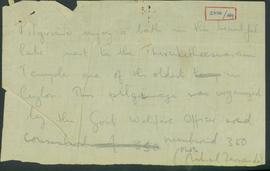 Pilgrims enjoy a bath in the beautiful
lake next to the Thiruketheeswaram
Temple one of the oldest in
Ceylon This pilgrimage was organised
by the Govt Welfare Officer and
consisted of numbered 360